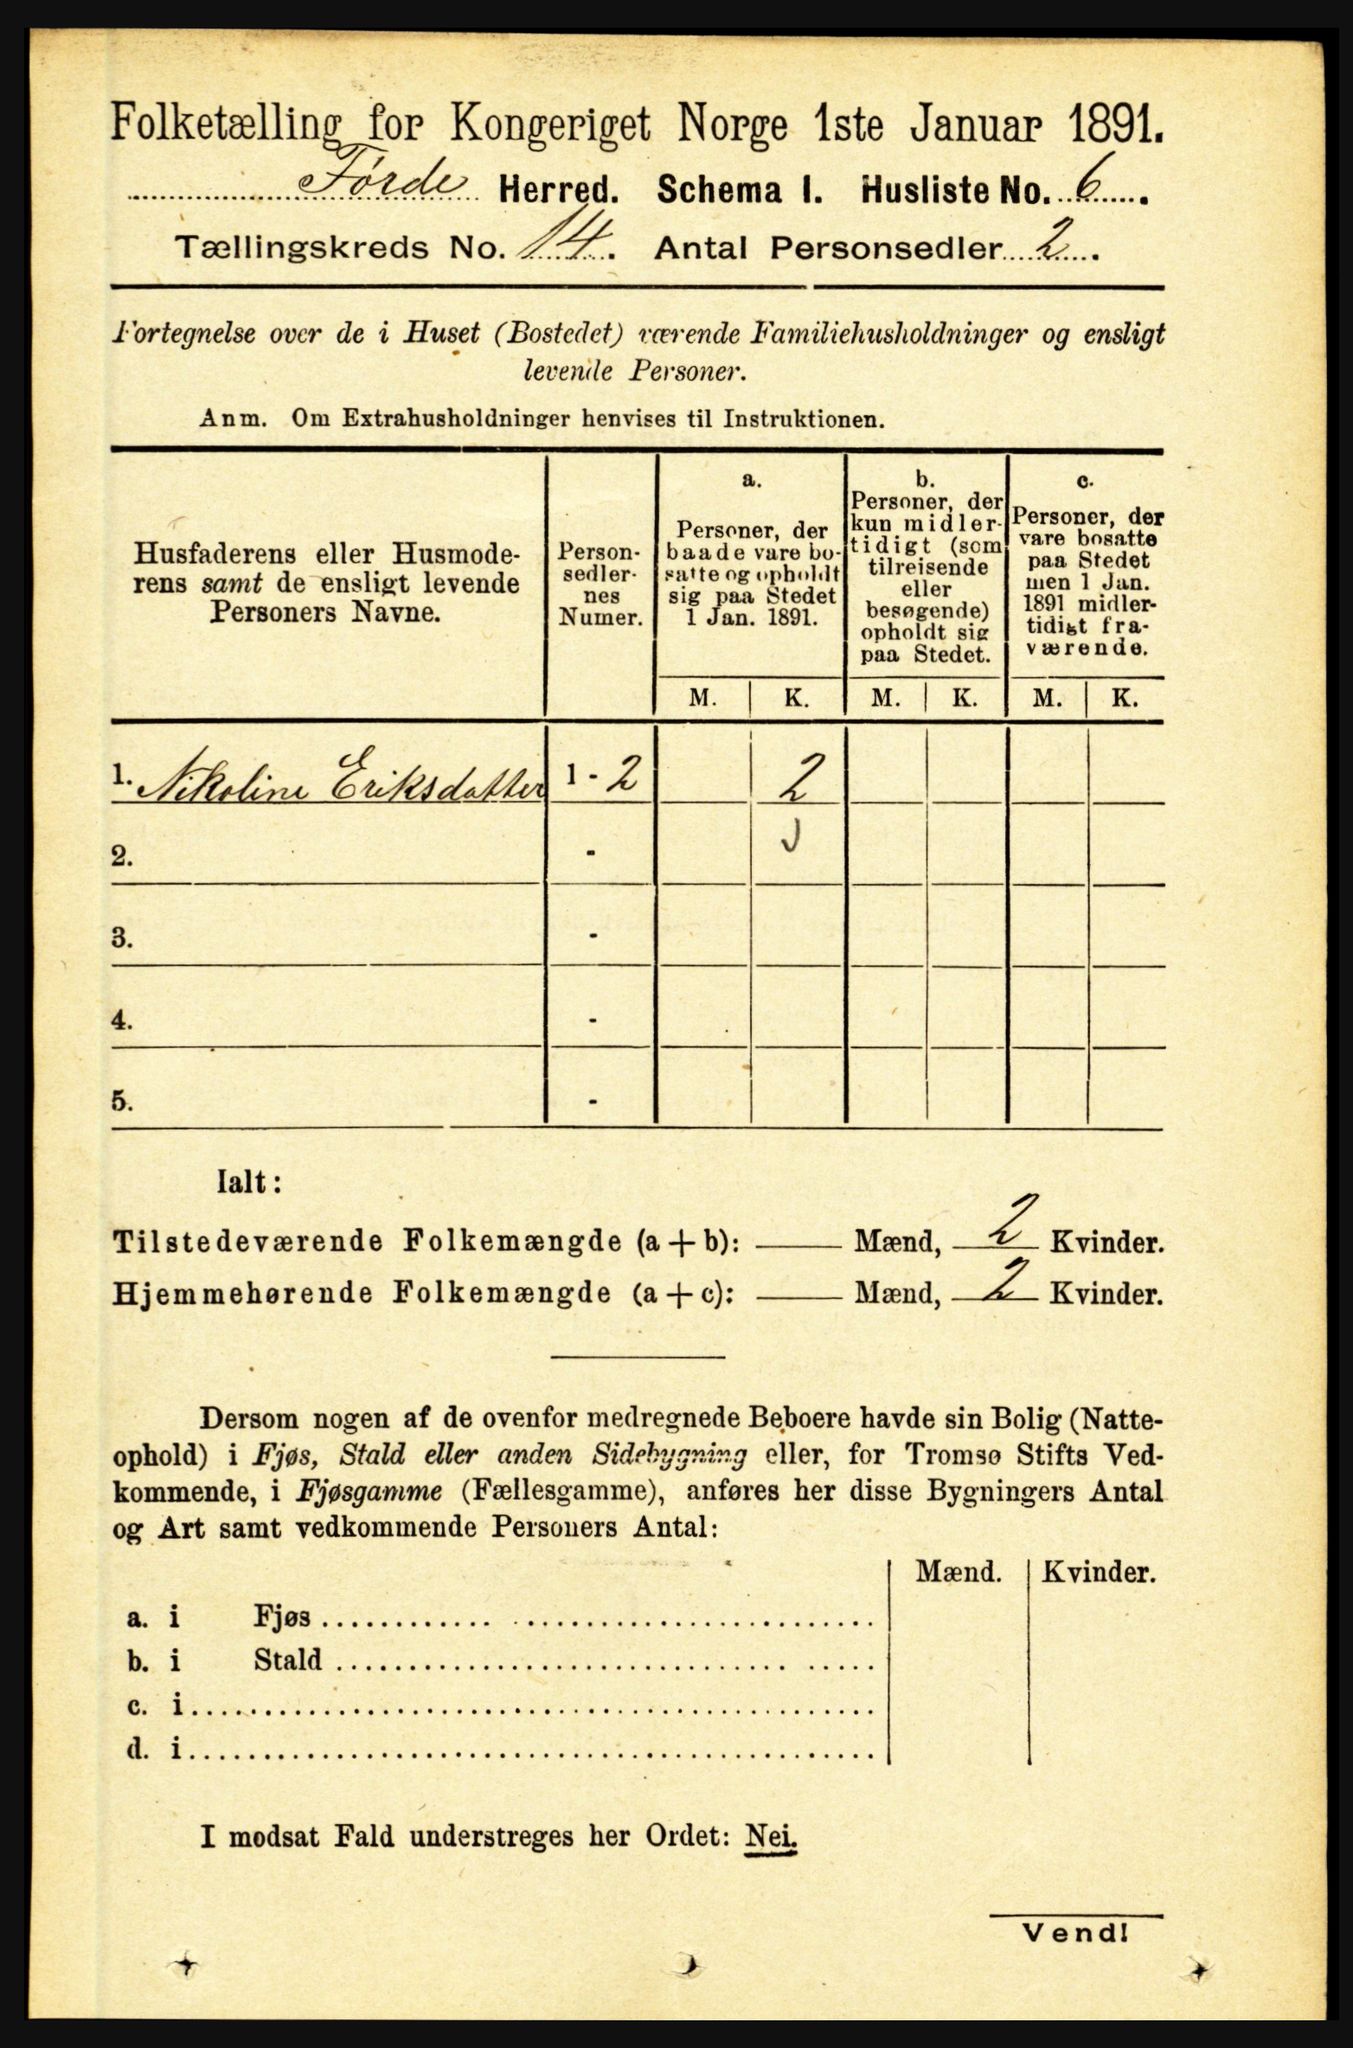 Folketælling for Kongeriget Norge 1ste Januar 1891.
Førde Herred. Schema I. Husliste No. 6.
Tællingskreds No. 14. Antal Personsedler 2.
Fortegnelse over de i Huset (Bostedet) værende Familiehusholdninger og ensligt
levende Personer.
Anm. Om Extrahusholdninger henvises til Instruktionen.
Husfaderens eller Husmode-
rens samt de ensligt levende
Personers Navne.
Person-
sedler-
nes
Numer.
a.
Personer, der
baade vare bo-
satte og opholdt
sig paa Stedet
1 Jan. 1891.
b.
Personer, der
kun midler-
tidigt (som
tilreisende
eller
besøgende)
opholdt sig
paa Stedet.
c.
Personer, der
vare bosatte
paa Stedet
men 1 Jan.
1891 midler-
tidigt fra-
værende.
M. K. M. K. M. K.
1. Nikoline Eriksdatter 1 - 2 2
2. -
3. -
4. -
5. -
Ialt:
Tilstedeværende Folkemængde (a + b): Mænd, 2 Kvinder.
Hjemmehørende Folkemængde (a + c): Mænd, 2 Kvinder.
Dersom nogen af de ovenfor medregnede Beboere havde sin Bolig (Natte-
ophold) i Fjøs, Stald eller anden Sidebygning eller, for Tromsø Stifts Ved-
kommende, i Fjøsgamme (Fællesgamme), anføres her disse Bygningers Antal
og Art samt vedkommende Personers Antal:
Mænd. Kvinder.
a. i Fjøs
b. i Stald
c. i
d. i
I modsat Fald understreges her Ordet: Nei.
Vend!